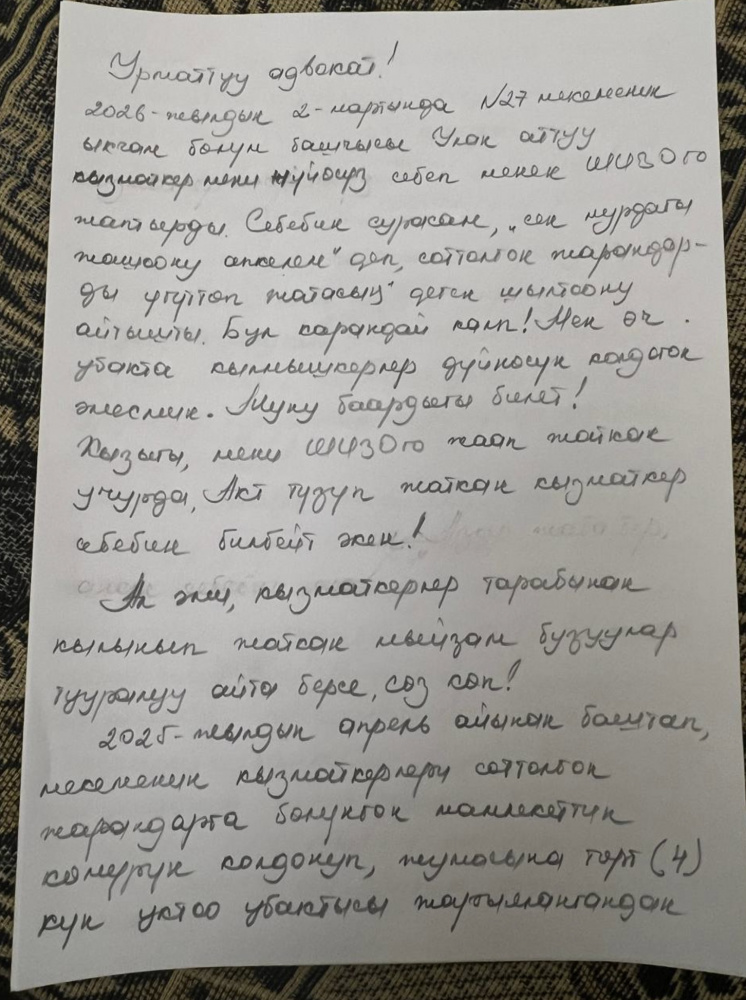 Урматтуу адвокат!
2026-жылдын 2-мартында №27 мекеменин
ыкчам болум башчысы Улан аттуу
кызматкер мени жүйөсүз себеп менен ШИЗОго
жаптырды. Себебин сурасам, „сен мурдагы
жашоону апкелем" деп, соттолгон жарандар-
ды үгүттөп жатасың" деген шылтоону
айтышты. Бул карандай калп! Мен өч
убакта кылмышкерлер дүйнөсүн колдогон
эмесмин. Муну баардыгы билет!
Кызыгы, мени ШИЗОго жаап жаткан
учурда, Акт түзүп жаткан кызматкер
себебин билбейт экен!
Ал эми, кызматкерлер тарабынан
кылынып жаткан мыйзам бузуулар
тууралуу айта берсе, сөз көп!
2025-жылдын апрель айынан баштап,
мекеменин кызматкерлери соттолгон
жарандарга бөлүнгөн мамлекеттин
көмүрүн колдонуп, жумасына төрт (4)
күн уктоо убактысы жарыялангандан